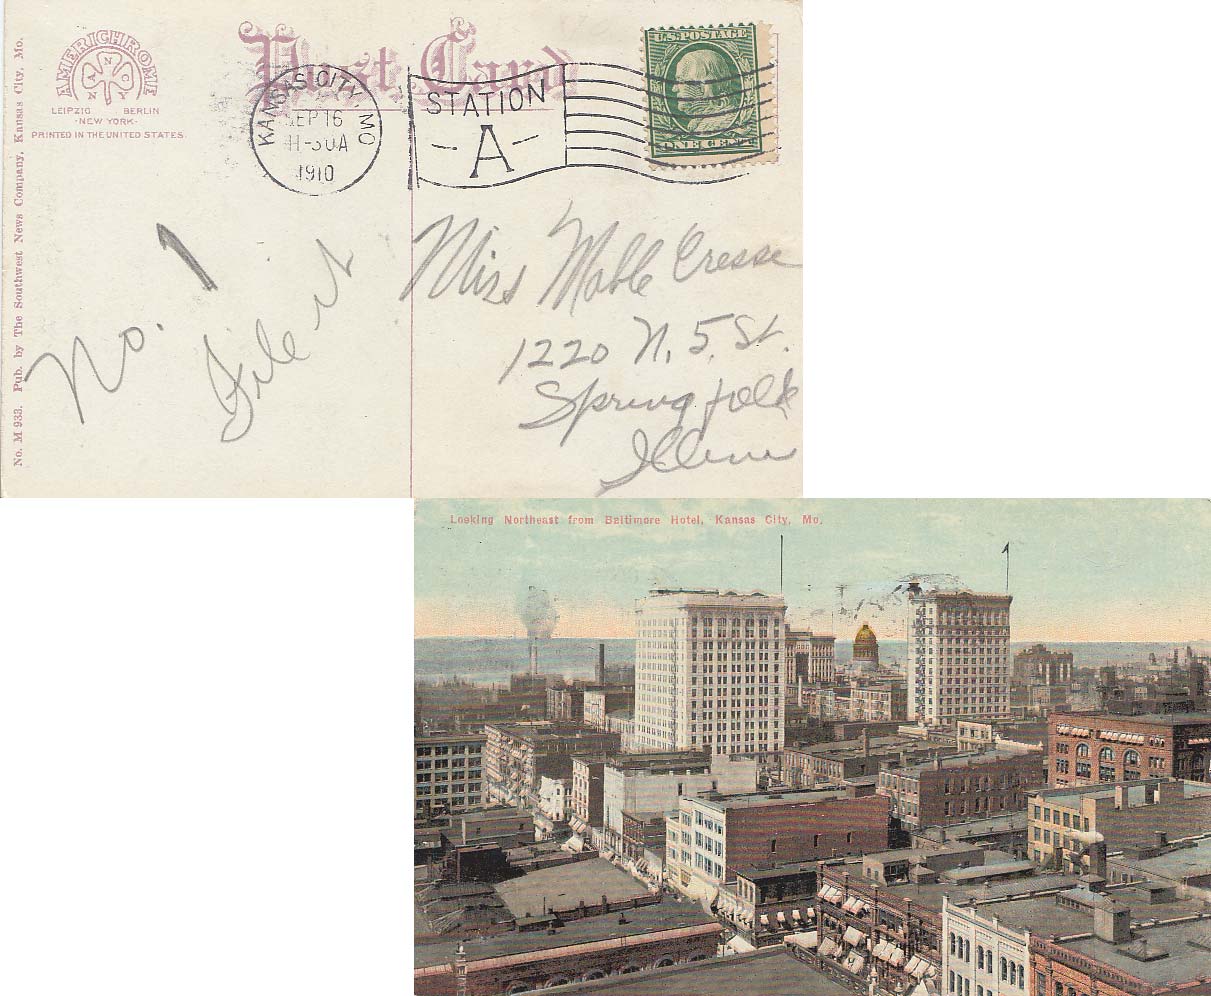 Post Card
AMERICHROME
A N C O N Y
LEIPZIG BERLIN
·NEW YORK·
PRINTED IN THE UNITED STATES
No. M 933. Pub. by The Southwest News Company, Kansas City, Mo.
KANSAS CITY, MO
SEP 16
11-30A
1910
STATION
-A-
U.S. POSTAGE
ONE CENT
No. 1
File it
Miss Mable Cresse
1220 N. 5. St.
Springfield
Looking Northeast from Baltimore Hotel, Kansas City, Mo.